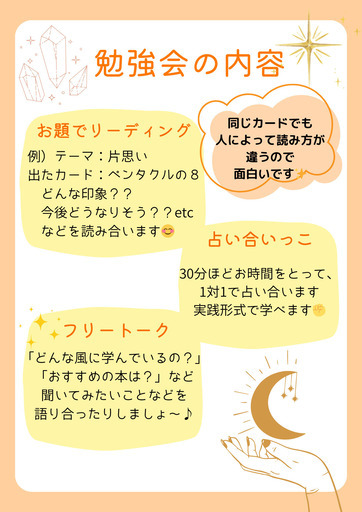 勉強会の内容
同じカードでも
人によって読み方が
違うので
面白いです✨
お題でリーディング
例）テーマ：片思い
出たカード：ペンタクルの８
どんな印象？？
今後どうなりそう？？etc
などを読み合います😊
占い合いっこ
30分ほどお時間をとって、
1対1で占い合います
実践形式で学べます✊
フリートーク
「どんな風に学んでいるの？」
「おすすめの本は？」など
聞いてみたいことなどを
語り合ったりしましょ〜♪